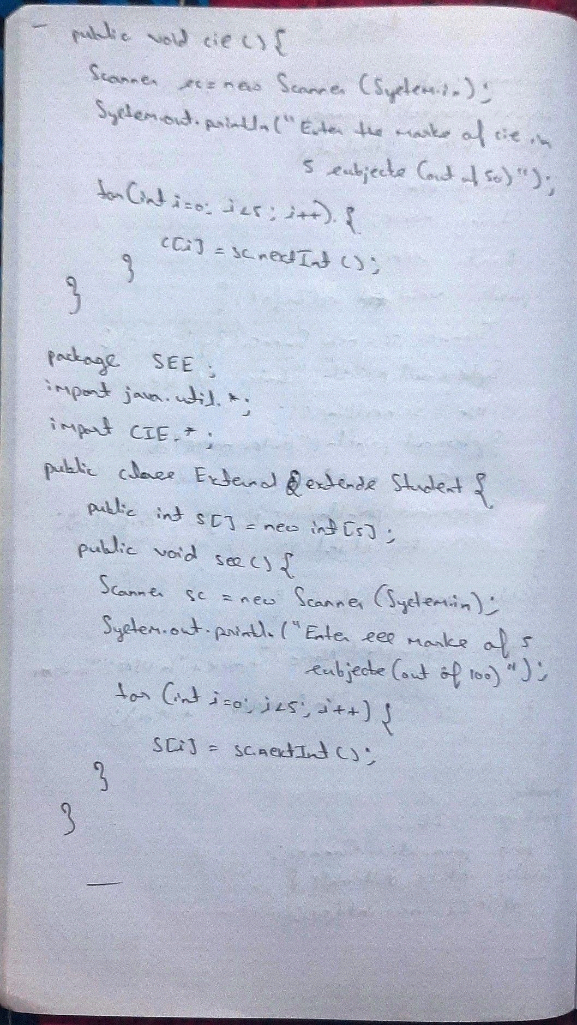 public void cie () {
Scanner sc = new Scanner (System.in);
System.out.println ("Enter the marks of cie in
5 subjects (out of 50)");
for (int i=0; i<5; i++) {
c[i] = sc.nextInt ();
}
}
package SEE ;
import java.util.*;
import CIE.*;
public class External extends Student {
public int s[] = new int [5];
public void see () {
Scanner sc = new Scanner (System.in);
System.out.println ("Enter see marks of 5
subjects (out of 100)");
for (int i=0; i<5; i++) {
s[i] = sc.nextInt ();
}
}